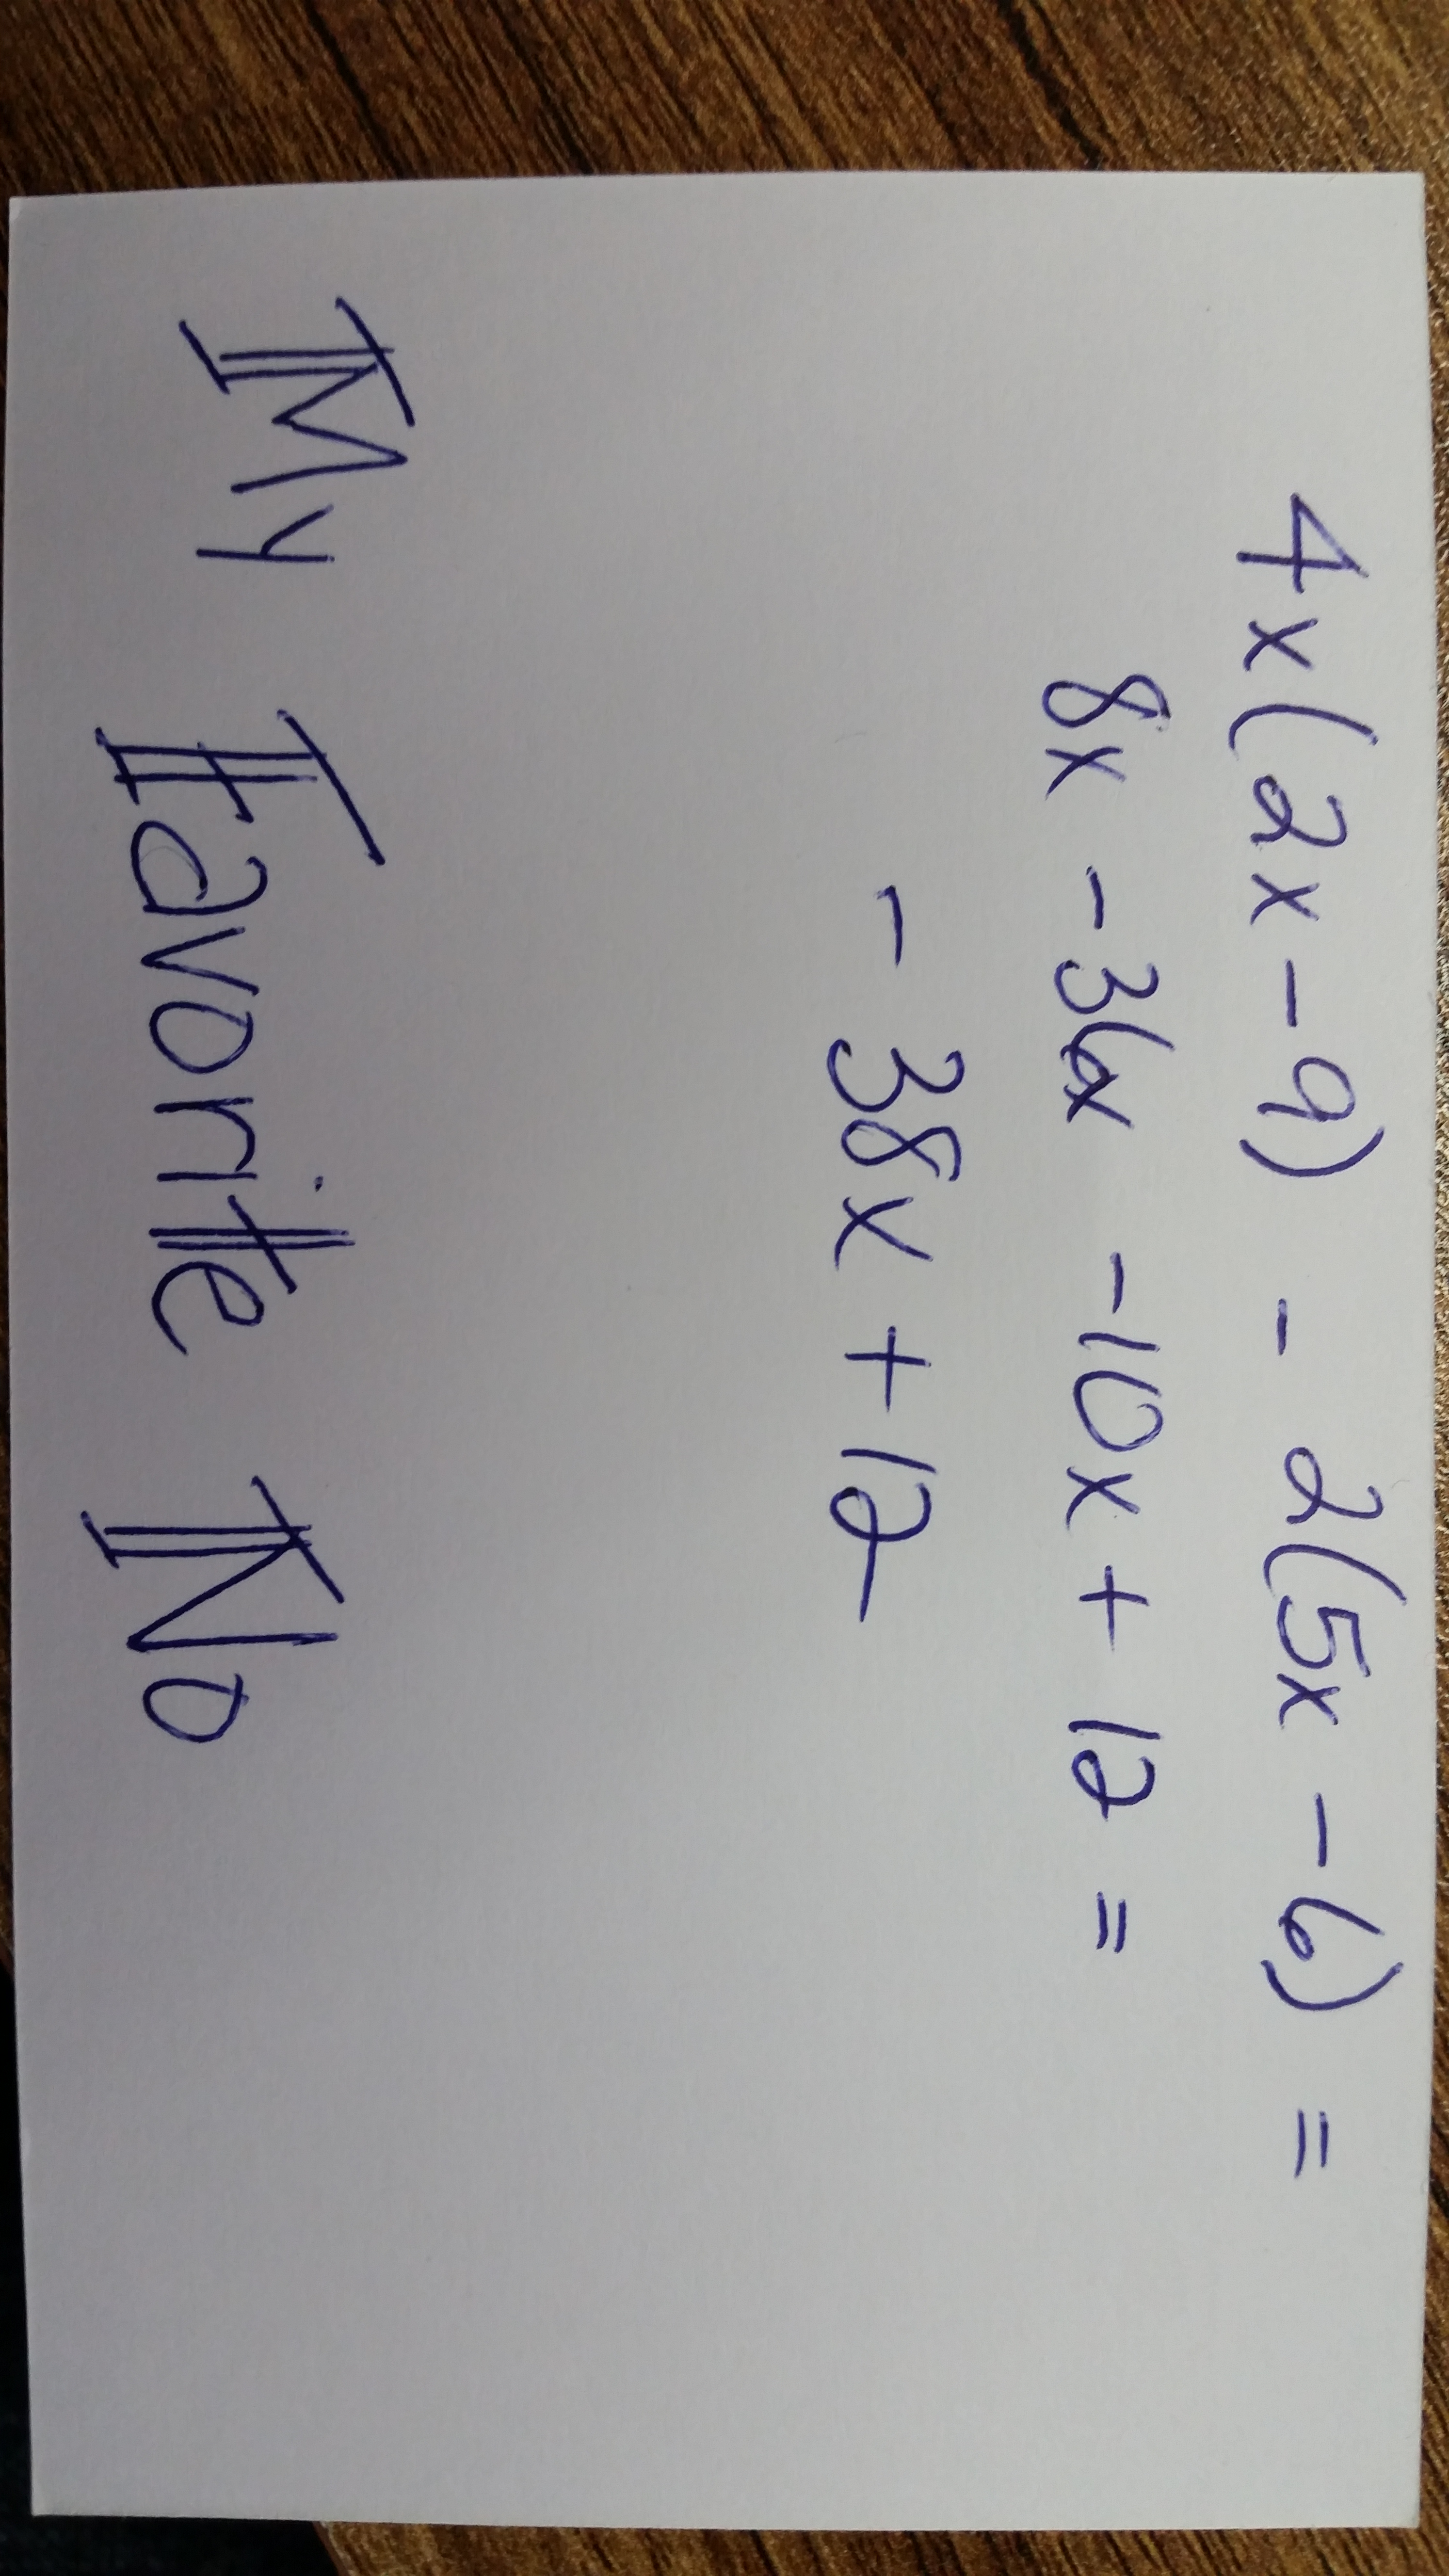 4x(2x-9) - 2(5x-6) =
8x -36x -10x + 12 =
- 38x + 12
My Favorite No